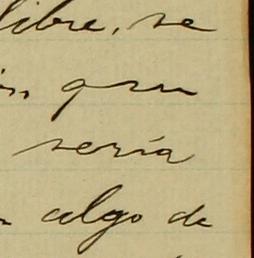 libre, se
que
sería
algo de